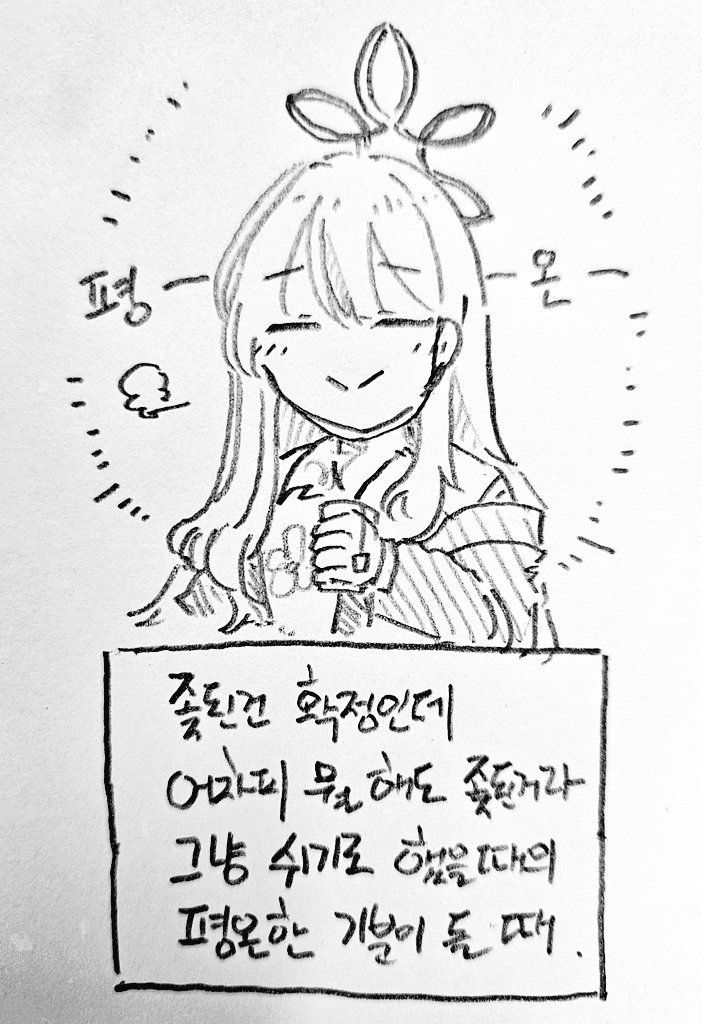 평— —온—
좆된건 확정인데
어차피 뭘 해도 좆된거라
그냥 쉬기로 했을때의
평온한 기분이 들 때.